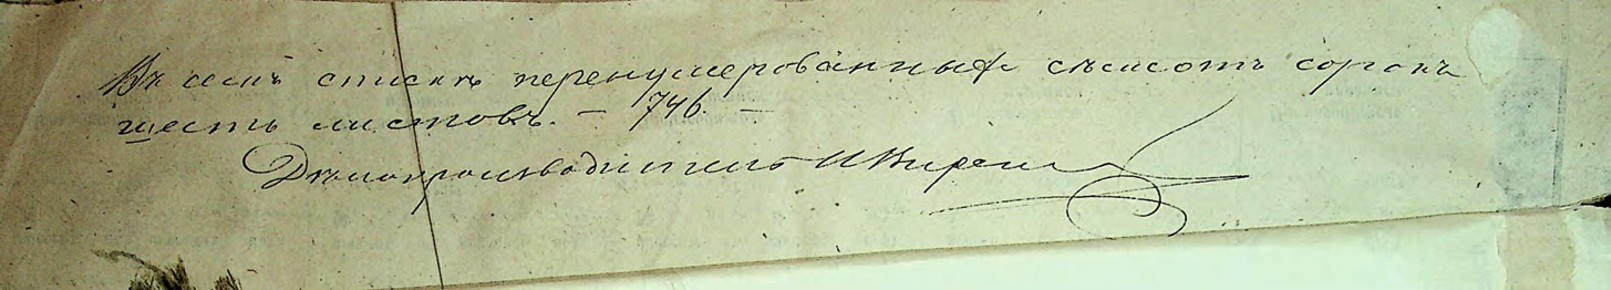 Въ семъ списке перенумерованныхъ семьсотъ сорокъ
шесть листовъ. — 746. —
Делопроизводитель